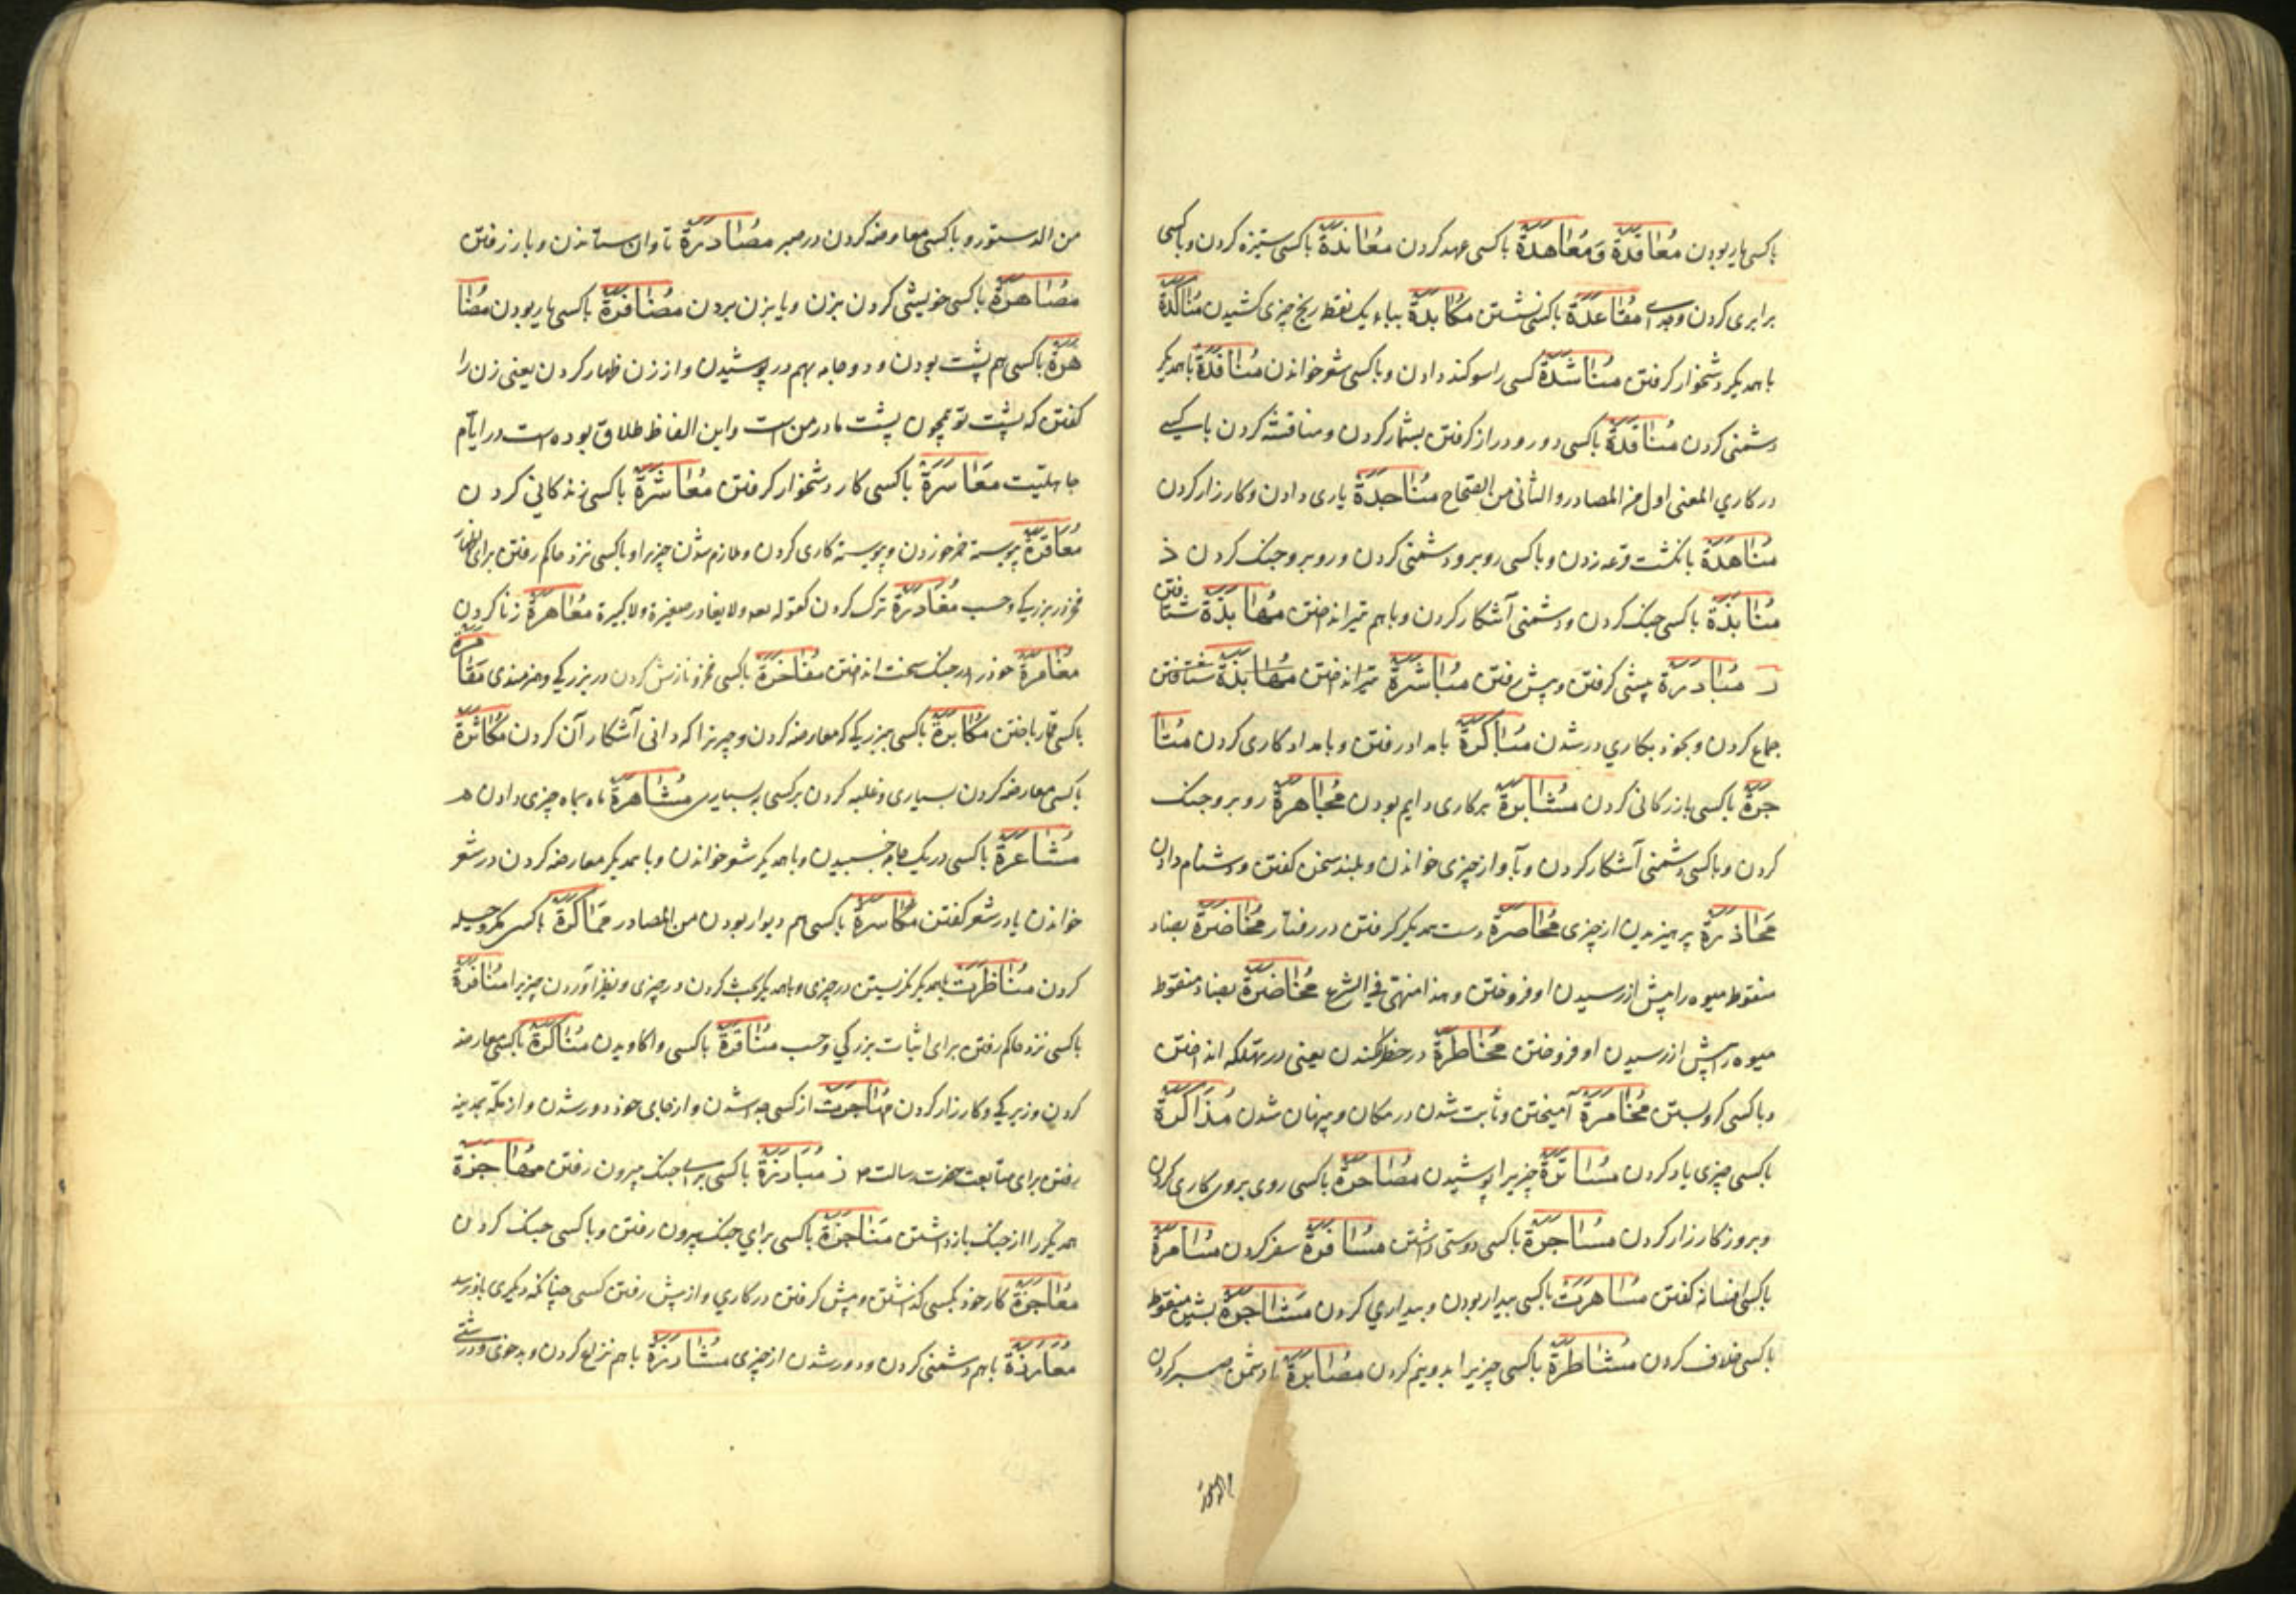 باکسی یار بودن مُعَاقَدَةٌ وَ مُعَاهَدَةٌ باکسی عهد کردن مُعَانَدَةٌ باکسی ستیزه کردن و باکسی
برابری کردن و مُقَاعَدَةٌ باکسی نشستن مُکَابَدَةٌ بباء یک نقطه رنج چیزی کشیدن مُنَاکَدَةٌ
با همدیکر دشخوار کرفتن مُنَاشَدَةٌ کسی را سوکند دادن و باکسی شعر خواندن مُنَافَدَةٌ با همدیکر
دشمنی کردن مُنَاقَدَةٌ باکسی دور و دراز کرفتن بشمار کردن و مناقشه کردن با کسی
در کاري المعنی اول من المصادر و الثانی من الصحاح مُنَاجَدَةٌ یاری دادن و کارزار کردن
مُنَاهَدَةٌ بانکشت قرعه زدن و باکسی روبرو دشمنی کردن و روبرو جنک کردن ذ
مُنَابَذَةٌ باکسی جنک کردن و دشمنی آشکار کردن و باهم تیر انداختن مُهَابَذَةٌ شتافتن
ر مُبَادَرَةٌ پیشی کرفتن و پیش رفتن مُبَاشَرَةٌ تیر انداختن مُهَابَذَةٌ شتافتن
جماع کردن و بخود بکاري در شدن مُبَاکَرَةٌ بامداد رفتن و بامداد کاری کردن مُتَا
جَرَةٌ باکسی بازرکانی کردن مُثَابَرَةٌ برکاری دایم بودن مُجَاهَرَةٌ روبرو جنک
کردن و باکسی دشمنی آشکار کردن و بآواز چیزی خواندن و بلند سخن کفتن و دشنام دادن
مُحَاذَرَةٌ پرهیزیدن از چیزی مُخَاصَرَةٌ دست همدیکر کرفتن در رفتار مُخَاضَرَةٌ بضاد
منقوط میوه را پیش از رسیدن او فروختن و هذا منهی فی الشرع مُخَاضَرَةٌ بضاد منقوط
میوه را پیش از رسیدن او فروختن مُخَاطَرَةٌ در خطر افکندن یعنی در تهلکه انداختن
و باکسی کرو بستن مُخَامَرَةٌ آمیختن و ثابت شدن در مکان و پنهان شدن مُذَاکَرَةٌ
باکسی چیزی یاد کردن مُسَاتَرَةٌ چیزیرا پوشیدن مُصَاحَرَةٌ باکسی روی بروی کاری کردن
و بروز کارزار کردن مُسَاجَرَةٌ باکسی دوستی داشتن مُسَافَرَةٌ سفر کردن مُسَامَرَةٌ
باکسی افسانه کفتن مُسَاهَرَتْ باکسی بیدار بودن و بیداري کردن مُشَاجَرَةٌ بشین منقوط
باکسی خلاف کردن مُشَاطَرَةٌ باکسی چیزیرا بدو نیم کردن مُصَابَرَةٌ با دشمن صبر کردن
من الدستور و باکسی معارضه کردن در صبر مُصَادَرَةٌ تاوان ستاندن و باز رفتن
مُصَاهَرَةٌ باکسی خویشی کردن بزن و یا بزن بردن مُضَافَرَةٌ باکسی یار بودن مُظَا
هَرَةٌ باکسی هم پشت بودن و دو جامه بهم در پوشیدن و از زن ظهار کردن یعنی زن را
کفتن که پشت تو همچون پشت مادر من است و این الفاظ طلاق بوده است در ایّام
جاهلیّت مُعَاسَرَةٌ باکسی کار دشخوار کرفتن مُعَاشَرَةٌ باکسی زندکانی کردن
مُعَاقَرَةٌ پیوسته خمر خوردن و پیوسته کاری کردن و ملازم شدن چیزیرا و باکسی نزد حاکم رفتن برای
فخر در بزرکی و حسب مُغَادَرَةٌ ترک کردن کقوله تعه و لا یغادر صغیرة ولا کبیرة مُعَاهَرَةٌ زنا کردن
مُغَامَرَةٌ خود را در جنک سخت انداختن مُفَاخَرَةٌ باکسی فخر و نازش کردن در بزرکی و هنرمندی مُقَامَرَةٌ
باکسی قمار باختن مُکَابَرَةٌ باکسی ببزرکی که معارضه کردن و چیزیرا که دانی آشکار آن کردن مُکَاثَرَةٌ
باکسی معارضه کردن بسیاری و غلبه کردن برکسی به بسیاری مُشَاهَرَةٌ ماه بماه چیزی دادن
مُشَاعَرَةٌ باکسی در یک جامه خسبیدن و با همدیکر شعر خواندن و با همدیکر معارضه کردن در شعر
خواندن یا در شعر کفتن مُکَاسَرَةٌ باکسی هم دیوار بودن من المصادر مُمَاکَرَةٌ باکسی مکر و حیله
کردن مُنَاظَرَتْ با همدیکر نکریستن در چیزی و با همدیکر بحث کردن در چیزی و نظیر آوردن چیزیرا مُنَافَرَةٌ
باکسی نزد حاکم رفتن برای اثبات بزرکي و حسب مُنَاقَرَةٌ باکسی واکاویدن مُنَاکَرَةٌ باکسی معارضه
کردن و زیرکی و کارزار کردن مُهَاجَرَتْ از کسی جدا شدن و از جای خود دور شدن و از مکّه بمدینه
رفتن برای متابعت حضرت رسالت ز مُبَارَزَةٌ باکسی برای جنک بیرون رفتن مُحَاجَزَةٌ
همدیکر را از جنک باز داشتن مُنَاجَزَةٌ باکسی برای جنک بیرون رفتن و باکسی جنک کردن
مُعَاجَزَةٌ کار خود بکسی کذاشتن و پیش کرفتن در کاري و از پیش رفتن کسی چنانکه دیکری باو نرسد
مُعَارَزَةٌ باهم دشمنی کردن و دور شدن از چیزی مُشَارَزَةٌ باهم نزاع کردن و بدخوی و درشتی
من الدستور